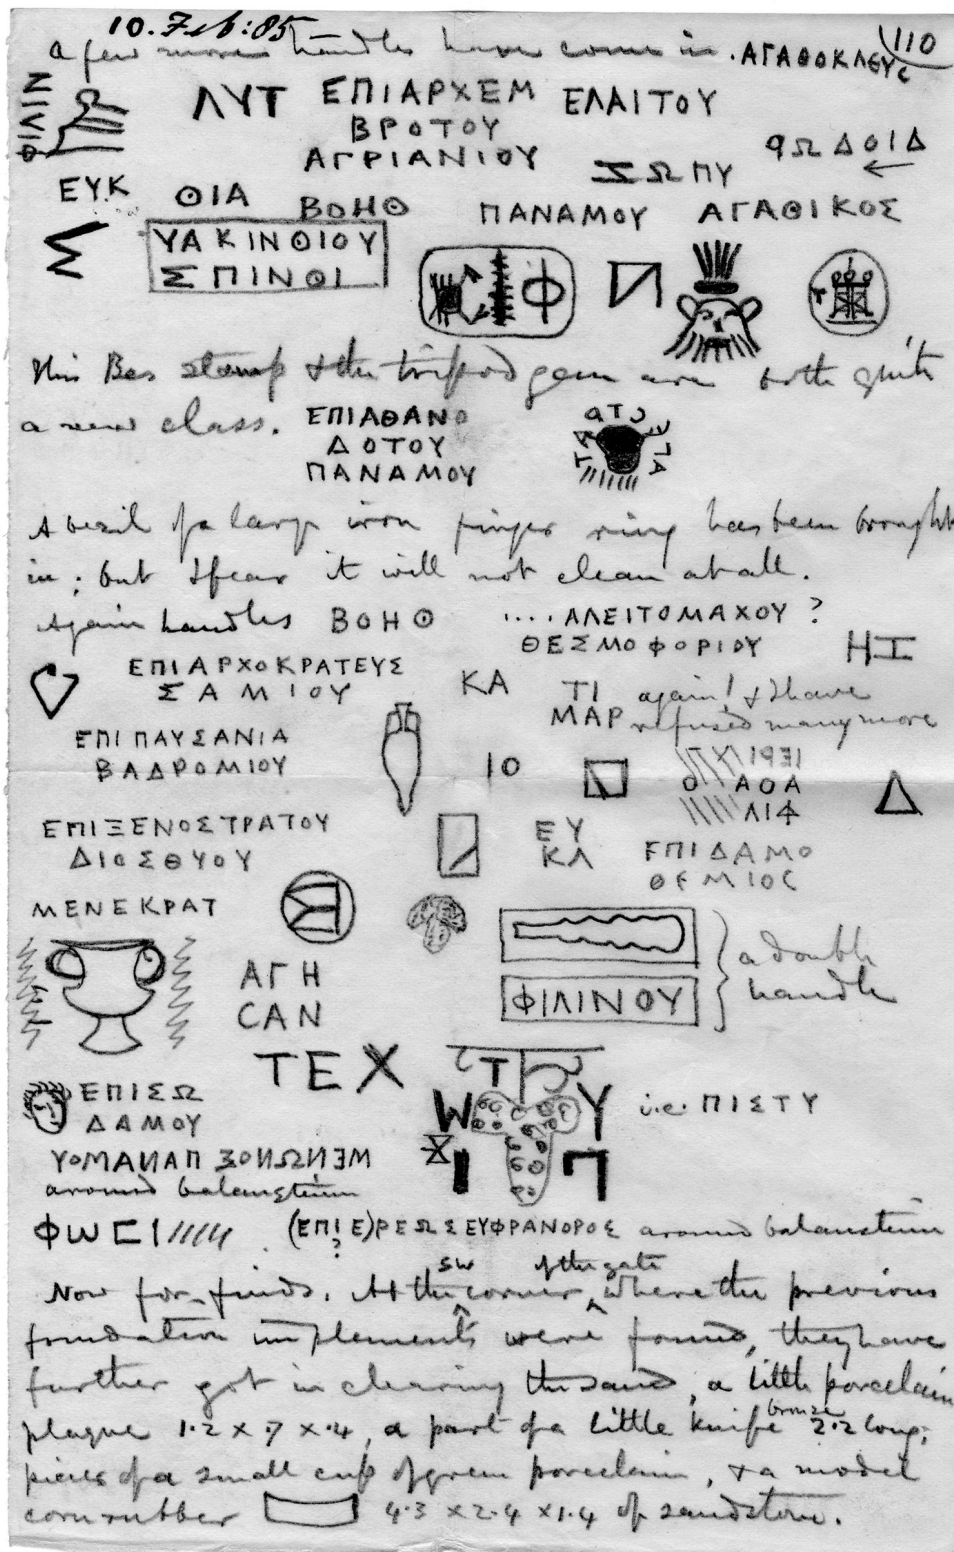 10. Feb: 85
110
A few more handles have come in. ΑΓΑΘΟΚΛΕΥϹ
ΦΙΛΙΝ ΛΥΤ ΕΠΙΑΡΧΕΜ ΕΛΑΙΤΟΥ
ΒΡΟΤΟΥ
ΑΓΡΙΑΝΙΟΥ ΣΩΠΥ ϙΩΔΟΙΔ
←
ΕΥΚ ΘΙΑ ΒΟΗΘ ΠΑΝΑΜΟΥ ΑΓΑΘΙΚΟΣ
Σ ΥΑΚΙΝΘΙΟΥ
ΣΠΙΝΘΙ
Φ И
This Bes stamp & the tripod gem are both quite
a new class. ΕΠΙΑΘΑΝΟ
ΔΟΤΟΥ
ΠΑΝΑΜΟΥ
A bezil of a large iron finger ring has been brought
in; but I fear it will not clean at all.
Again handles ΒΟΗΘ ....ΑΛΕΙΤΟΜΑΧΟΥ?
ΘΕΣΜΟΦΟΡΙΟΥ ΗΙ
ΕΠΙΑΡΧΟΚΡΑΤΕΥΣ
ΣΑΜΙΟΥ ΚΑ ΤΙ again! & I have
ΜΑΡ refused many more
ΕΠΙΠΑΥΣΑΝΙΑ
ΒΑΔΡΟΜΙΟΥ ΙΟ
ΑΟΑ Δ
ΛΙΦ
ΕΠΙΞΕΝΟΣΤΡΑΤΟΥ ΕΥ
ΔΙΟΣΘΥΟΥ ΚΛ ΕΠΙΔΑΜΟ
ΘΕΜΙΟϹ
ΜΕΝΕΚΡΑΤ
a double
handle
ΑΓΗ
ϹΑΝ ΦΙΛΙΝΟΥ
ΤΕΧ Τ
ΕΠΙΣΩ W Υ i.e. ΠΙΣΤΥ
ΔΑΜΟΥ
Ι Π
ΥΟΜΑΝΑΠ ΣΟΝΩΝΕΜ
around balaustium
ΦωΙΙΙΙΙ (ΕΠΙΕ)ΡΕΩΣΕΥΦΡΑΝΟΡΟΣ around balaustium
?
Now for finds. At the SW corner of the gate where the previous
foundation implements were found, they have
further got in clearing the sand, a little porcelain
plaque 1.2 x .7 x .4, a part of a little knife bronze 2.2 long,
pieces of a small cup of green porcelain, & a model
corn rubber 4.3 x 2.4 x 1.4 of sandstone.